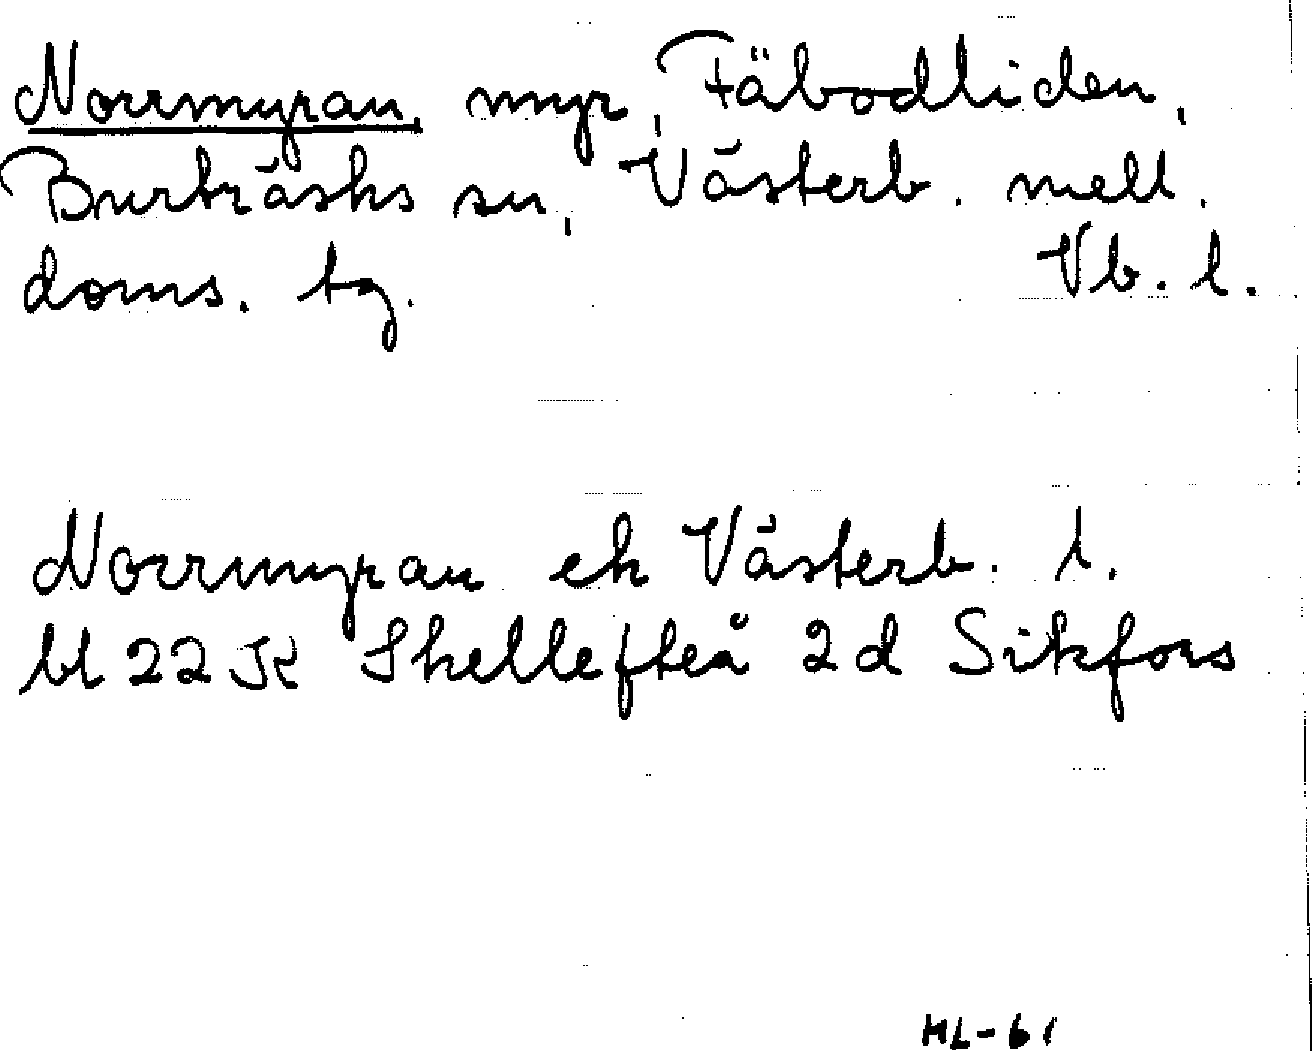 Norrmyran, myr, Fäbodliden,
Burträsks sn, Västerb. mell.
doms. tg. Vb. l.
Norrmyran ek Västerb. l.
bl 22 K Skellefteå 2d Sikfors
HL-61